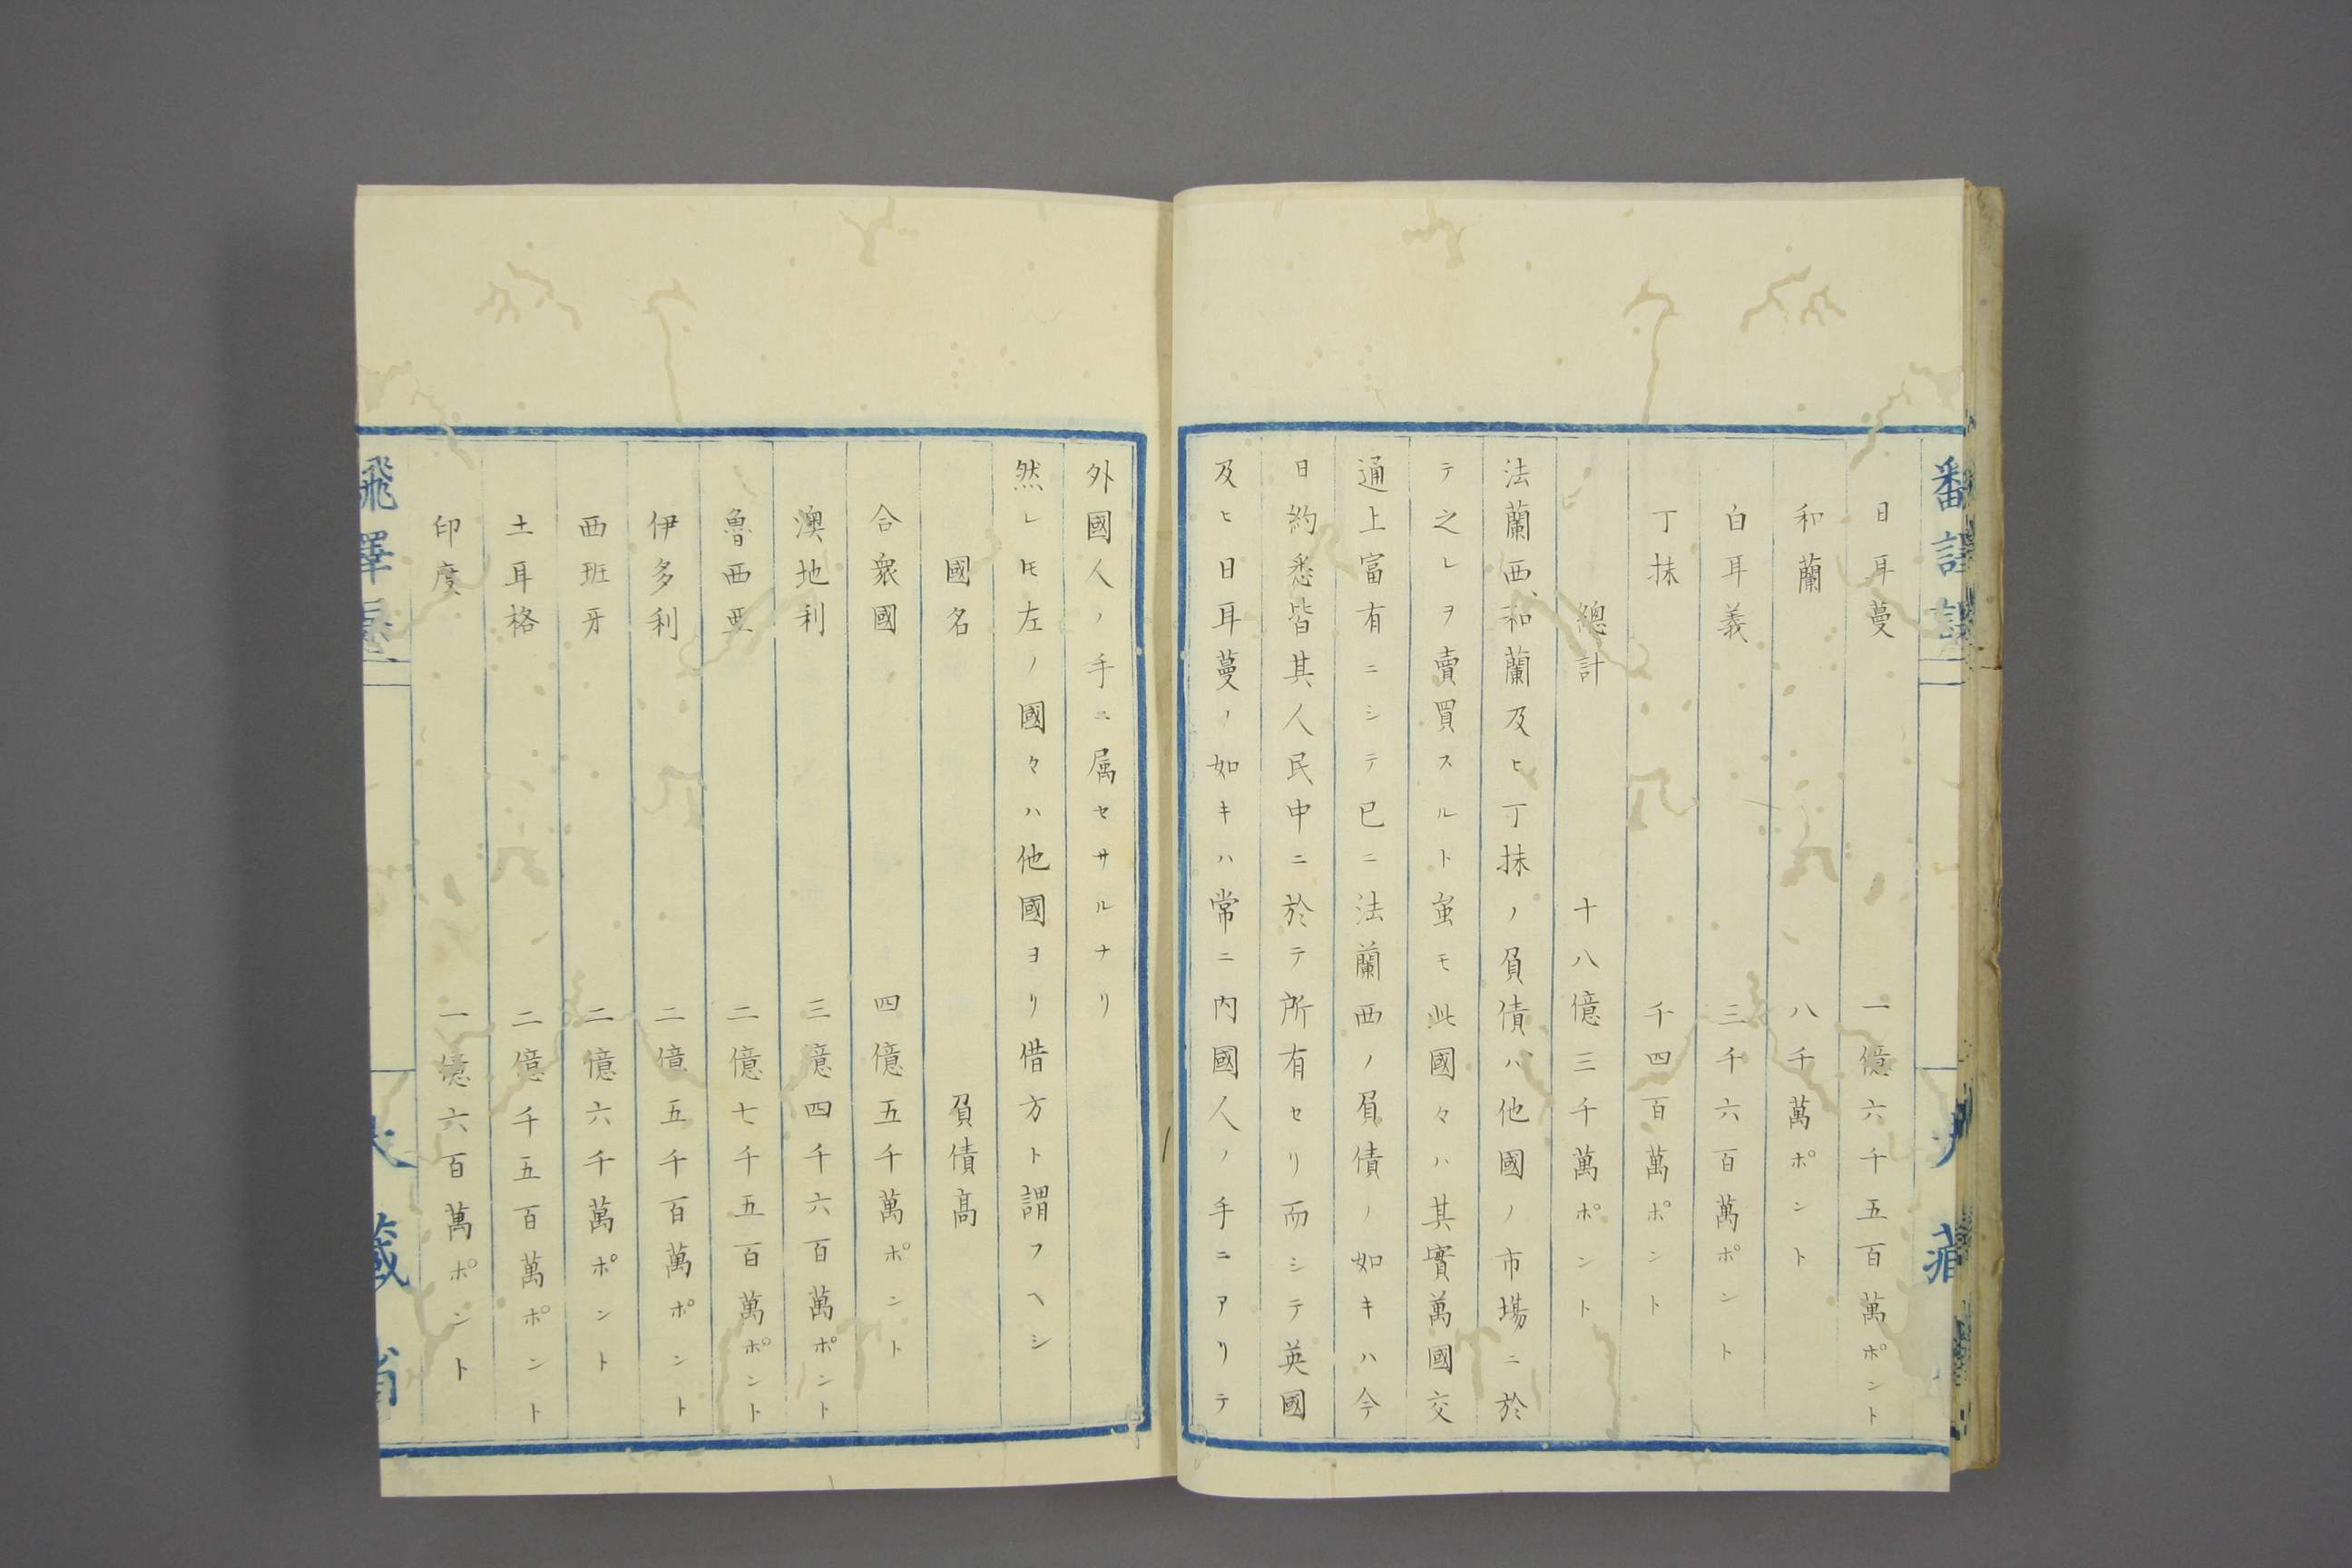 日耳蔓　一億六千五百萬ポント
和蘭　八千萬ポント
白耳義　三千六百萬ポント
丁抹　千四百萬ポント
總計　十八億三千萬ポント
法蘭西、和蘭及ヒ丁抹ノ負債ハ他國ノ市場ニ於
テ之レヲ賣買スルト虽モ此國々ハ其實萬國交
通上富有ニシテ已ニ法蘭西ノ負債ノ如キハ今
日約悉皆其人民中ニ於テ所有セリ而シテ英國
及ヒ日耳蔓ノ如キハ常ニ内國人ノ手ニアリテ
外國人ノ手ニ属セサルナリ
然レ𪜈左ノ國々ハ他國ヨリ借方ト謂フヘシ
國名　負債高
合衆國　四億五千萬ポント
澳地利　三億四千六百萬ポント
魯西亜　二億七千五百萬ポント
伊多利　二億五千百萬ポント
西班牙　二億六千萬ポント
土耳格　二億千五百萬ポント
印度　一億六百萬ポント